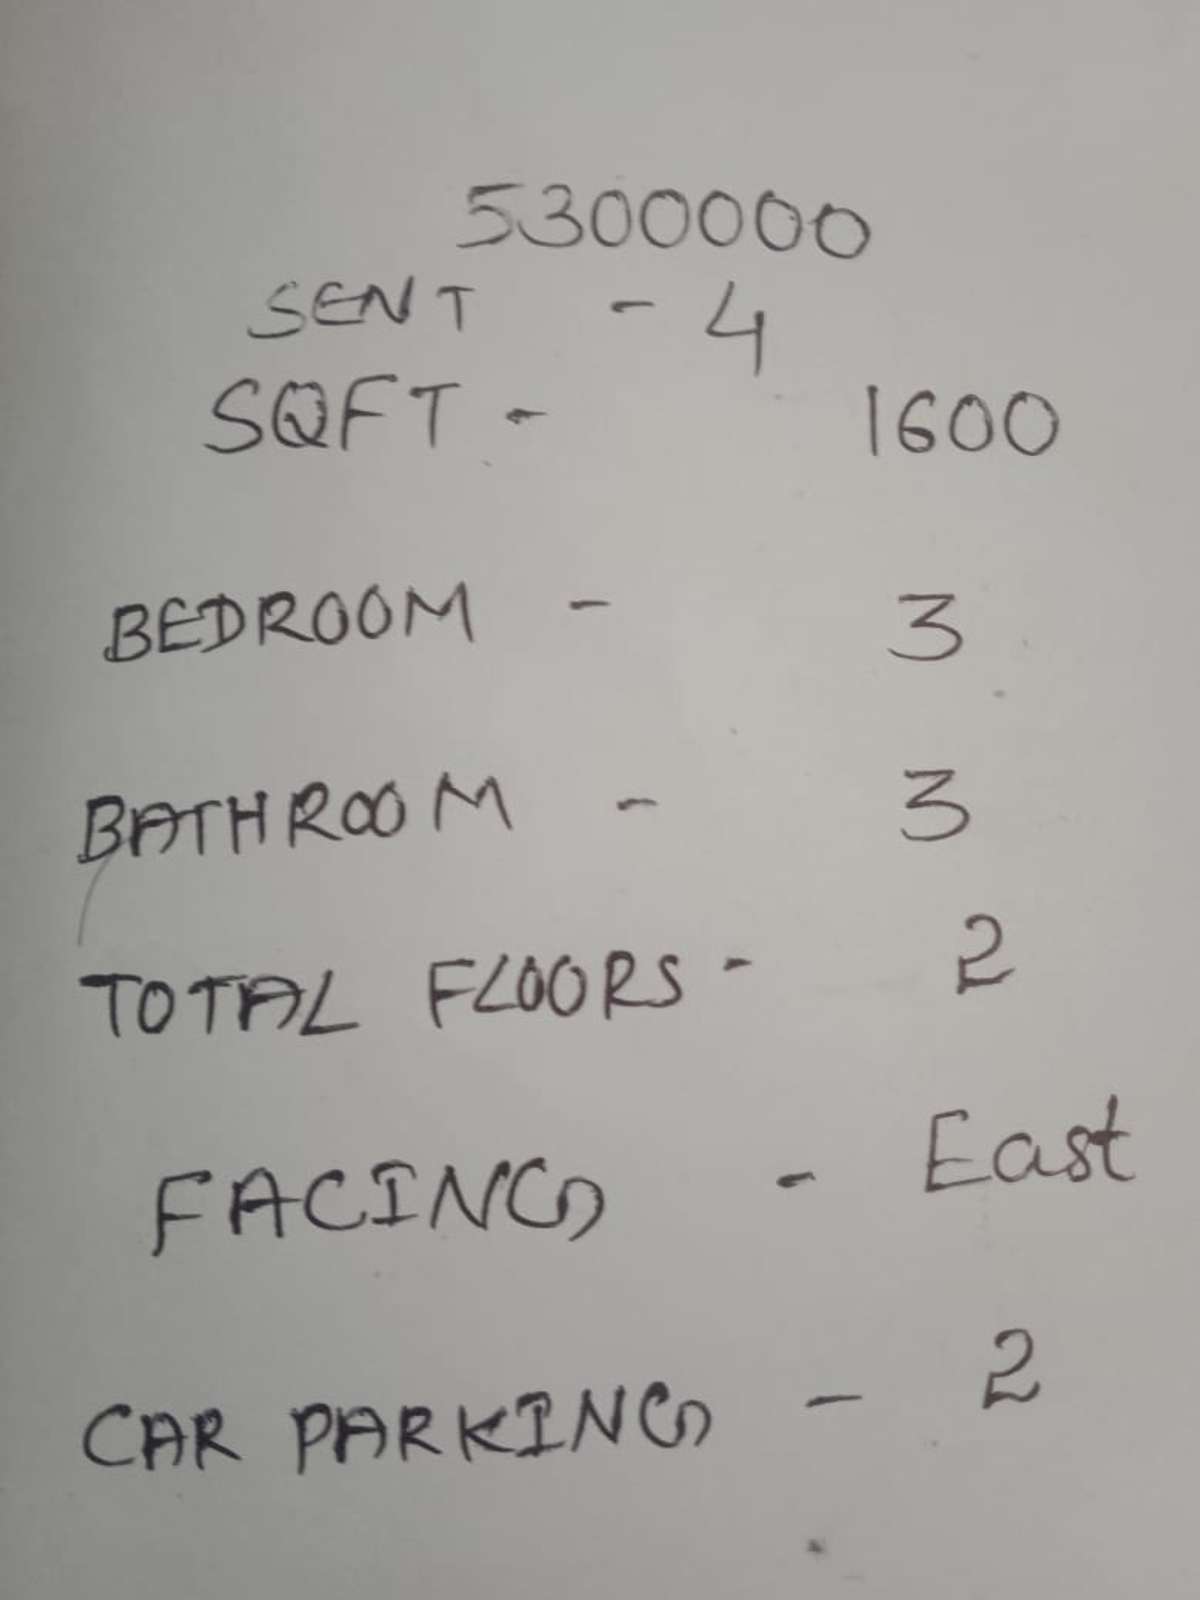 5300000
SENT - 4
SQFT - 1600
BEDROOM - 3
BATHROOM - 3
TOTAL FLOORS - 2
FACING - East
CAR PARKING - 2